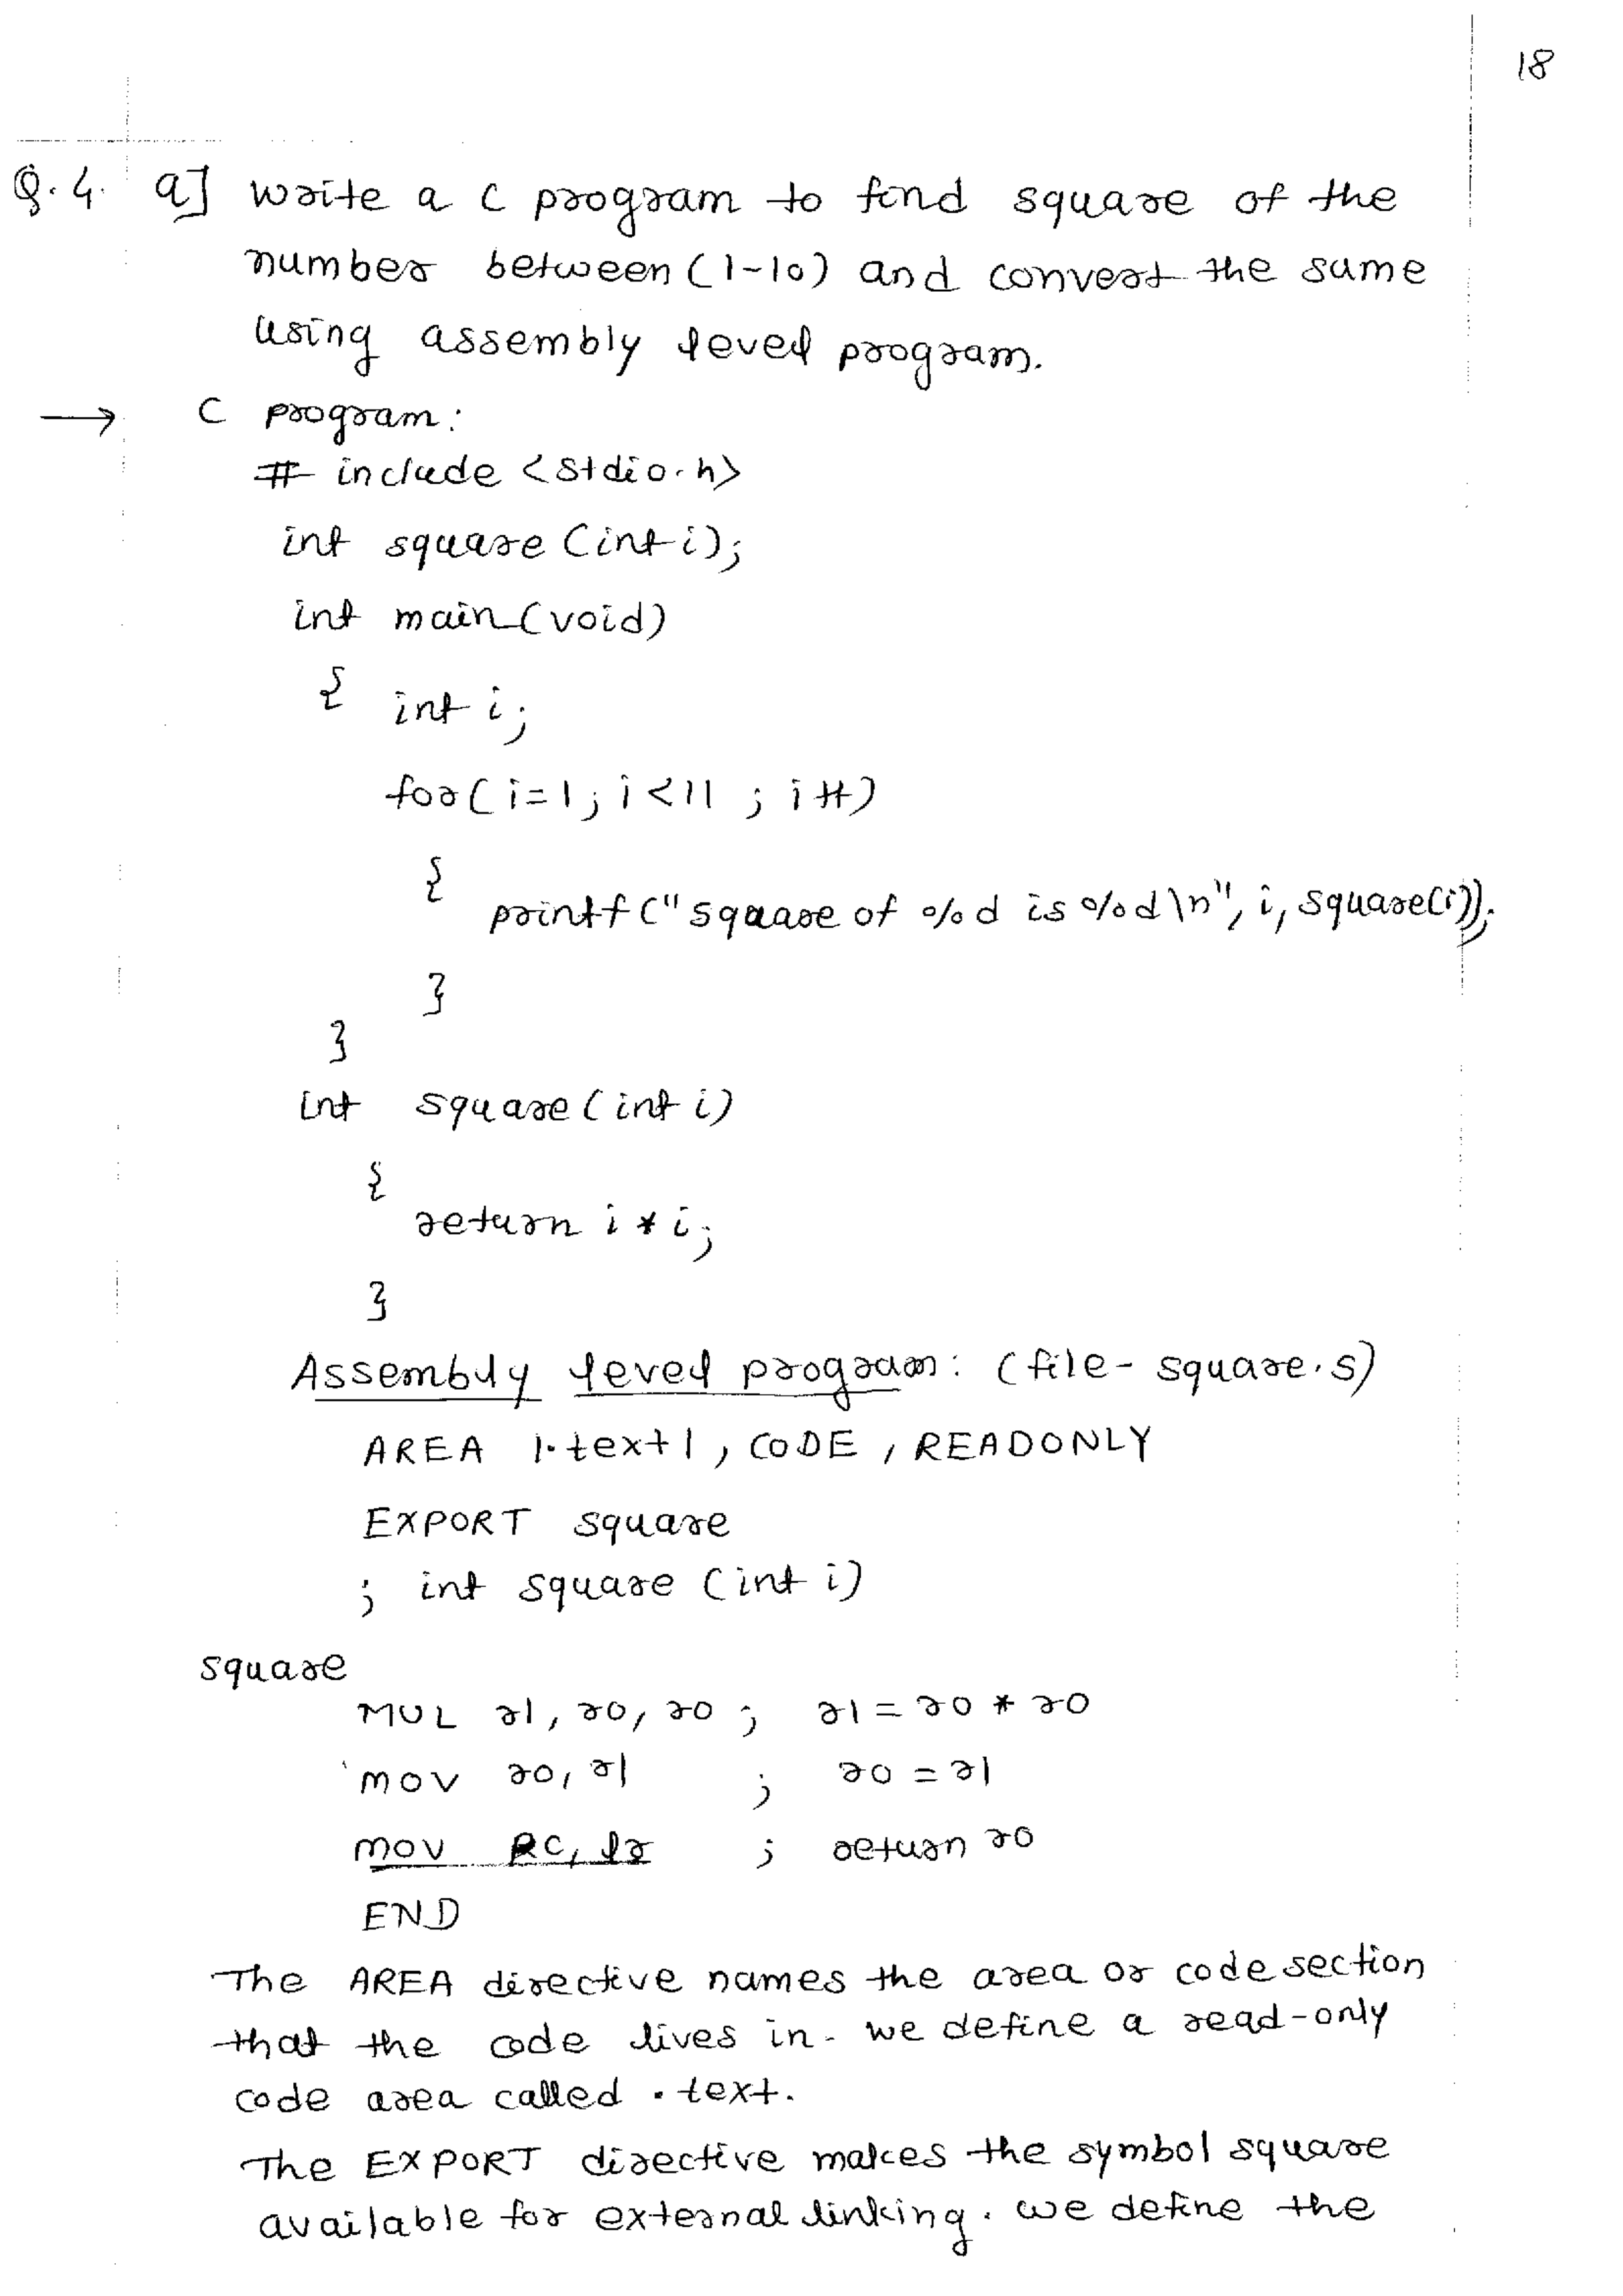 18
Q.4. a] write a C program to find square of the
number between (1-10) and convert the same
using assembly level program.
→ C program:
# include <stdio.h>
int square (int i);
int main (void)
{ int i;
for( i=1; i<11 ; i++)
{
printf ("square of %d is %d\n", i, square(i));
}
}
int square (int i)
{
return i * i;
}
Assembly level program: (file - square.s)
AREA |.text|, CODE, READONLY
EXPORT square
; int square (int i)
square
MUL r1, r0, r0 ; r1 = r0 * r0
MOV r0, r1 ; r0 = r1
MOV PC, lr ; return r0
END
The AREA directive names the area or code section
that the code lives in. we define a read-only
code area called .text.
The EXPORT directive makes the symbol square
available for external linking. we define the